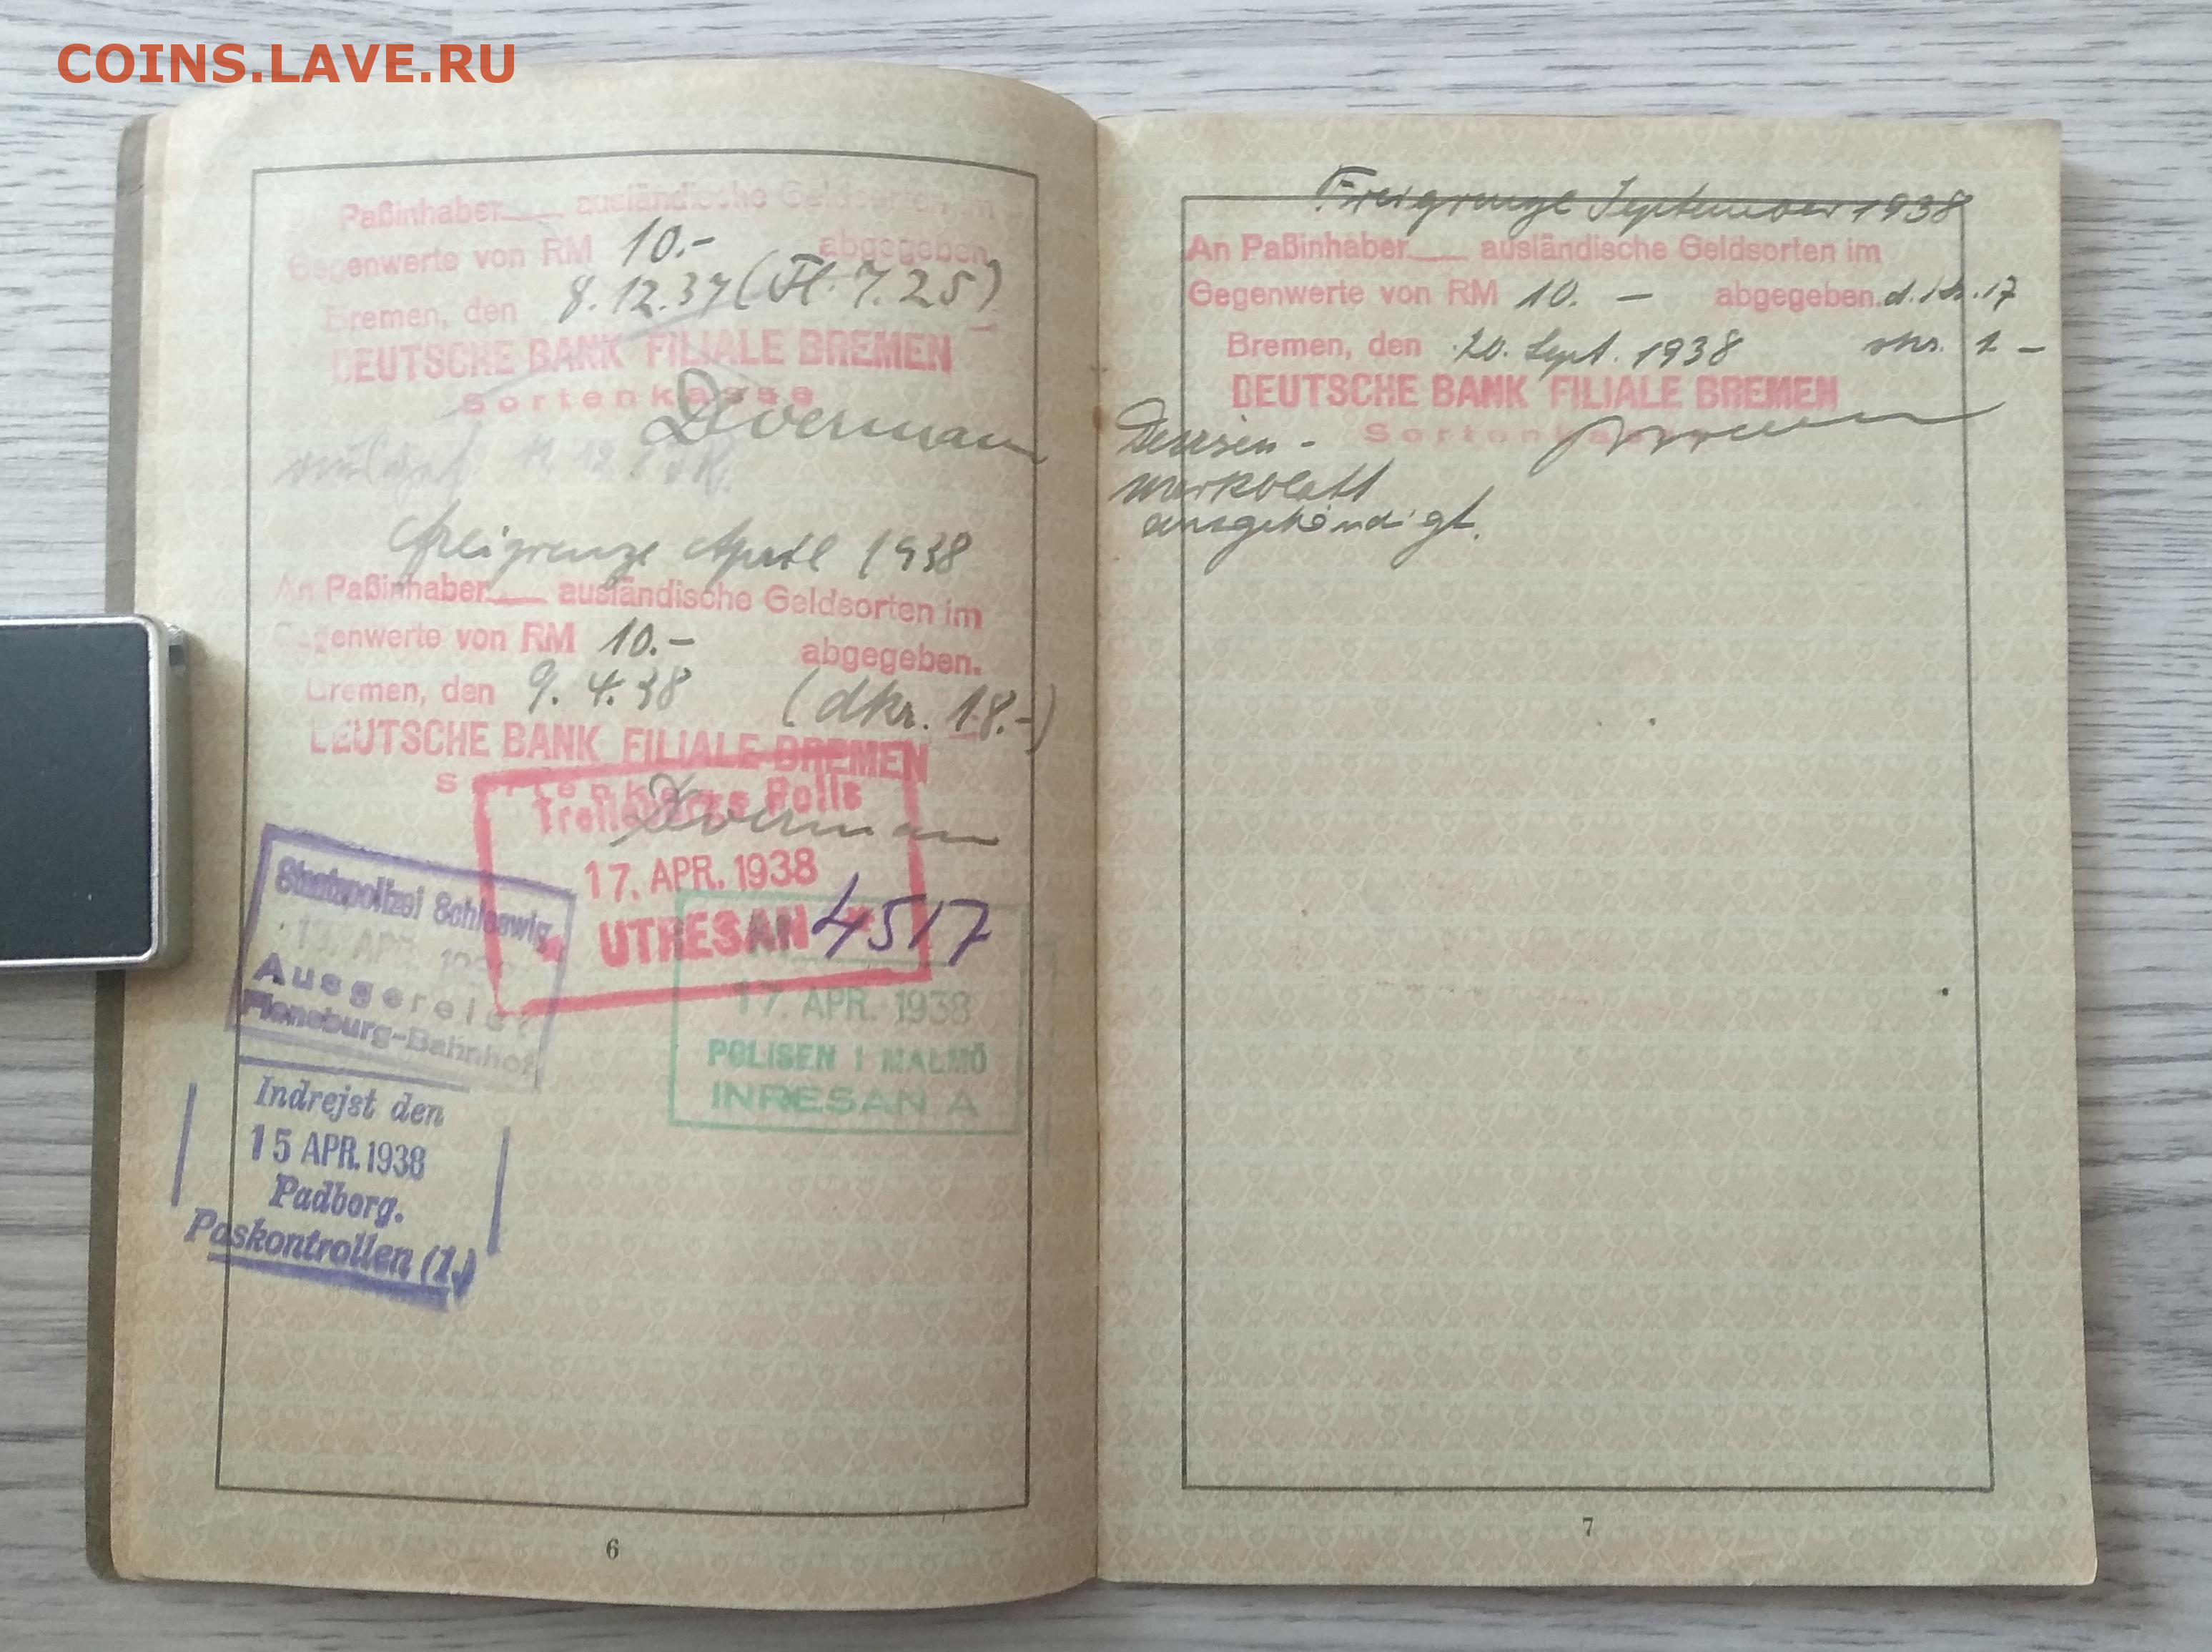 COINS.LAVE.RU
Paßinhaber ausländische Geldsorten im
Gegenwerte von RM 10.- abgegeben.
Bremen, den 8.12.37 (Fl. 7.25)
DEUTSCHE BANK FILIALE BREMEN
Sortenkasse
Freigrenze April 1938
An Paßinhaber ausländische Geldsorten im
Gegenwerte von RM 10.- abgegeben.
Bremen, den 9.4.38 (dkr. 18.-)
DEUTSCHE BANK FILIALE BREMEN
Sortenkasse
Trelleborgs Polis
17. APR. 1938
UTRESAN
4517
Staatspolizei Schleswig
APR.
Ausgereist
Flensburg-Bahnhof
17. APR. 1938
POLISEN I MALMÖ
INRESAN A
Indrejst den
15 APR. 1938
Padborg.
Paskontrollen (1.)
6
Freigrenze September 1938
An Paßinhaber ausländische Geldsorten im
Gegenwerte von RM 10. — abgegeben.
Bremen, den 20. Sept. 1938
DEUTSCHE BANK FILIALE BREMEN
Sortenkasse
Devisen-
merkblatt
ausgehändigt.
7